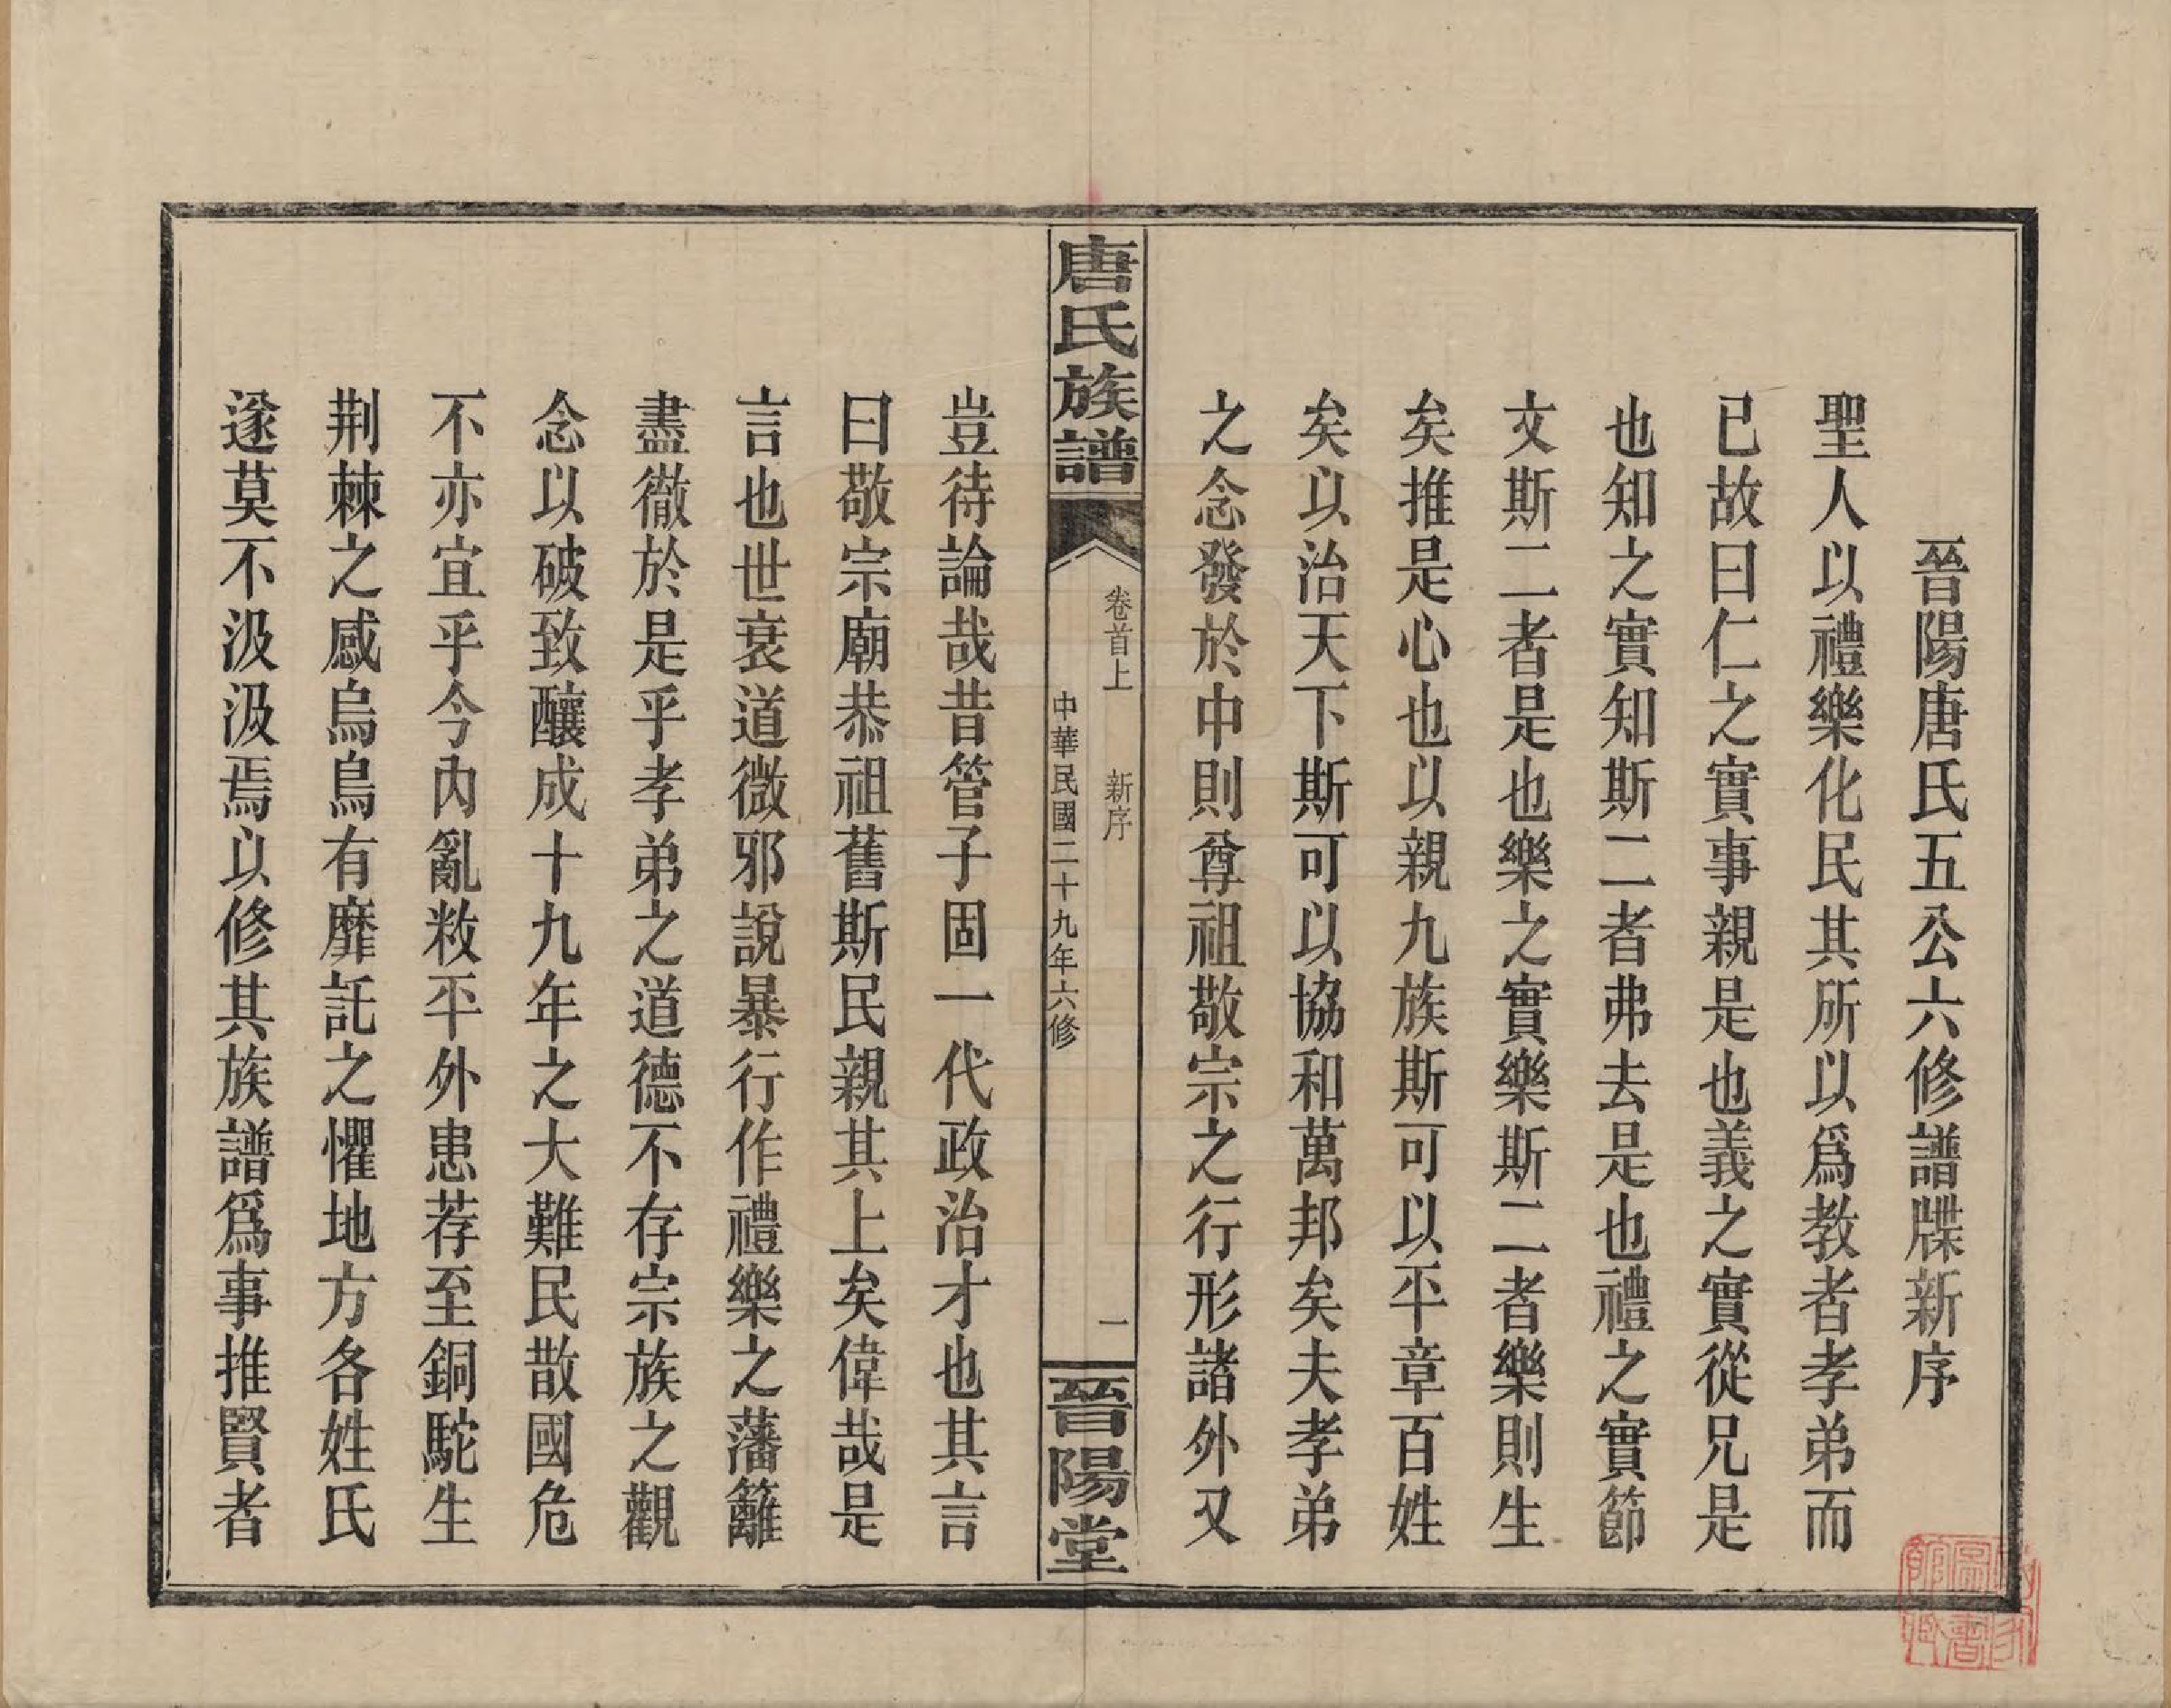 晉陽唐氏五公六修譜牒新序
聖人以禮樂化民其所以爲教者孝弟而
已故曰仁之實事親是也義之實從兄是
也知之實知斯二者弗去是也禮之實節
文斯二者是也樂之實樂斯二者樂則生
矣推是心也以親九族斯可以平章百姓
矣以治天下斯可以協和萬邦矣夫孝弟
之念發於中則尊祖敬宗之行形諸外又
唐氏族譜
卷首上 新序
中華民國二十九年六修
一
晉陽堂
豈待論哉昔管子固一代政治才也其言
曰敬宗廟恭祖舊斯民親其上矣偉哉是
言也世衰道微邪說暴行作禮樂之藩籬
盡徹於是乎孝弟之道德不存宗族之觀
念以破致釀成十九年之大難民散國危
不亦宜乎今內亂敉平外患荐至銅駝生
荆棘之感烏烏有靡託之懼地方各姓氏
遂莫不汲汲焉以修其族譜爲事推賢者